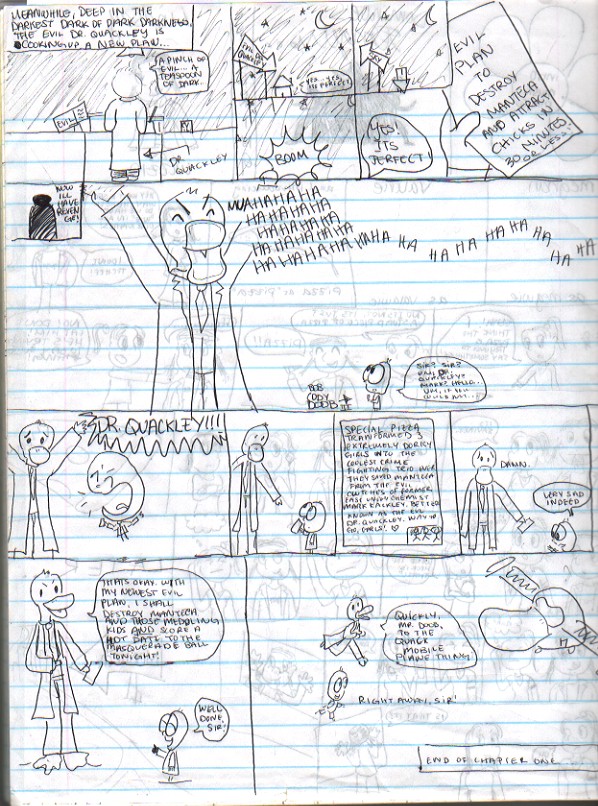 MEANWHILE, DEEP IN THE
DARKEST DARK OF DARK DARKNESS,
THE EVIL DR. QUACKLEY IS
COOKING UP A NEW PLAN...
A PINCH OF
EVIL... A
TEASPOON
OF DARK..
EVIL
DR. QUACKLEY
YES... YES...
ITS PERFECT!
BOOM
YES!
ITS
PERFECT!
EVIL
PLAN
TO
DESTROY
MANTECA
AND ATTRACT
CHICKS IN
30 MINUTES!
OR LESS
NOW
ILL
HAVE
REVEN
GE!
MUAHAHAHA
HAHAHAHA
HAHAHAHA
HAHAHAHAHA
HAHAHAHAHA HA HA HA HA HA HA HA HA HA
BOB
DOOB
SIR? SIR?
DR.
QUACKLEY?
MARK? HELLO..
UM, IF YOU
COULD JUST...
DR. QUACKLEY!!!!
SPECIAL PIZZA
TRANSFORMED 3
EXTREMELY DORKY
GIRLS INTO THE
COOLEST CRIME
FIGHTING TRIO EVER
THEY SAVED MANTECA
FROM THE EVIL
CLUTCHES OF FORMER
EAST CHEMIST
MARK EACKLEY, BETTER
KNOWN AS THE EVIL
DR. QUACKLEY. WAY TO
GO, GIRLS! ♡
DAMN.
VERY SAD
INDEED
THATS OKAY. WITH
MY NEWEST EVIL
PLAN, I SHALL
DESTROY MANTECA
AND THOSE MEDDLING
KIDS AND SCORE A
HOT DATE TO THE
MASQUERADE BALL
TONIGHT!
WELL
DONE,
SIR!
QUICKLY,
MR. DOOB,
TO THE
QUACK
MOBILE
PLANE THING
RIGHT AWAY, SIR!
END OF CHAPTER ONE...